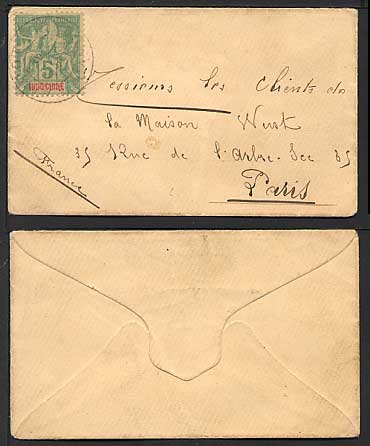 5
INDO-CHINE
Messieurs les Clients de
la Maison Wust
35 Rue de l'Arbre-Sec 35
Paris
France